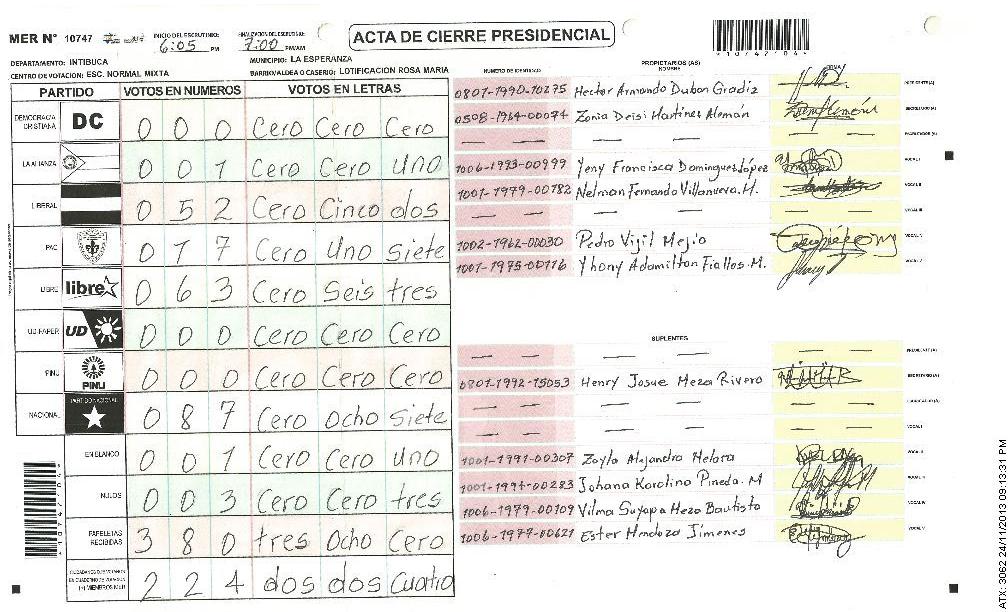 MER Nº 10747
INICIO DEL ESCRUTINIO: 6:05 PM
FINALIZACION DEL ESCRUTINIO: 7:00 PM/AM
ACTA DE CIERRE PRESIDENCIAL
DEPARTAMENTO: INTIBUCA
MUNICIPIO: LA ESPERANZA
CENTRO DE VOTACION: ESC. NORMAL MIXTA
BARRIO/ALDEA O CASERIO: LOTIFICACION ROSA MARIA
PARTIDO VOTOS EN NUMEROS VOTOS EN LETRAS
DEMOCRACIA CRISTIANA DC 0 0 0 Cero Cero Cero
LA ALIANZA 0 0 1 Cero Cero Uno
LIBERAL 0 5 2 Cero Cinco dos
PAC 0 1 7 Cero Uno Siete
LIBRE libre 0 6 3 Cero Seis tres
UD-FAPER UD 0 0 0 Cero Cero Cero
PINU PINU 0 0 0 Cero Cero Cero
NACIONAL PARTIDO NACIONAL 0 8 7 Cero Ocho Siete
EN BLANCO 0 0 1 Cero Cero Uno
NULOS 0 0 3 Cero Cero tres
PAPELETAS RECIBIDAS 3 8 0 tres Ocho Cero
2 2 4 dos dos Cuatro
NUMERO DE IDENTIDAD
PROPIETARIOS (AS)
NOMBRE
FIRMA
0801-1990-10275 Hector Armando Dubon Gradiz PRESIDENTE(A)
0508-1964-00074 Zonia Deisi Martines Alemán SECRETARIO (A)
— — — — — — ESCRUTADOR (A)
1006-1993-00999 Yeny Francisca Domingues López VOCAL I
1001-1979-00782 Nelman Fernando Villanueva. H. VOCAL II
— — — — — — VOCAL III
1002-1962-00030 Pedro Vigil Mejio VOCAL IV
1001-1975-00116 Yhony Adamilton Fiallos M. VOCAL V
SUPLENTES
— — — — — — PRESIDENTE (A)
0801-1992-15053 Henry Josue Meza Rivero SECRETARIO (A)
— — — — — — ESCRUTADOR (A)
— — — — — — VOCAL I
1001-1991-00307 Zoyla Alejandra Melora VOCAL II
1001-1994-00283 Johana Karolina Pineda. M VOCAL III
1006-1979-00109 Vilma Suyapa Meza Bautista VOCAL IV
1006-1977-00621 Ester Mendoza Jimenes VOCAL V
ATX: 3062 24/11/2013 09:13:31 PM